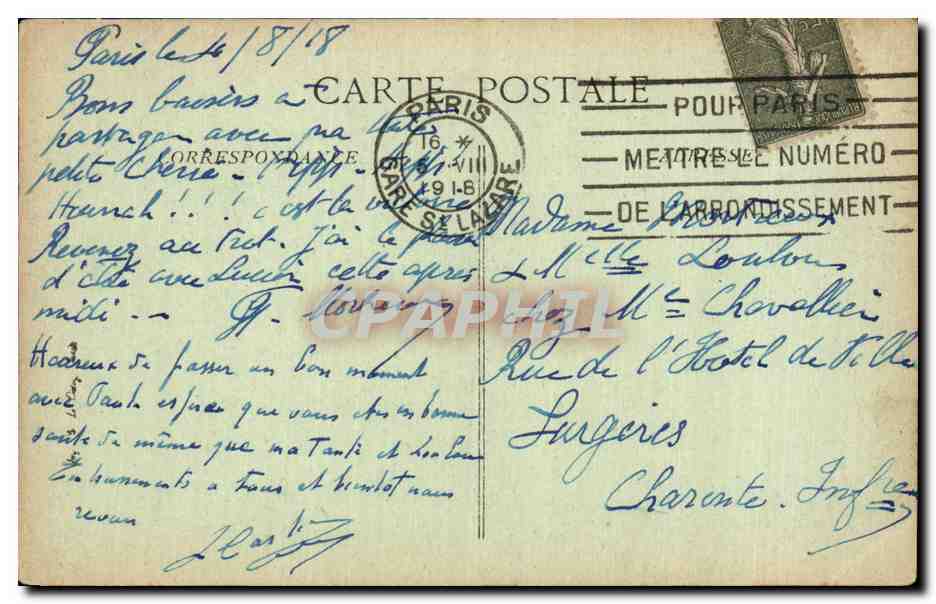 Paris le 4/8/18
CARTE POSTALE
Bons baisers
partager avec ma
CORRESPONDANCE
petite Chérie
Hourrah!!! c'est la
Revenez au trot. J'ai
d'été avec Lucien cette après
midi --
Heureux de passer un bon moment
avec Tante espère que vous êtes en bonne
santé de même que ma Tante et Loulou
Embrassements à tous et bientôt nous
PARIS
16 *
VIII
1918
GARE ST LAZARE
POUR PARIS
METTRE LE NUMÉRO
DE L'ARRONDISSEMENT
ADRESSE
Madame
& Melle Loulou
chez Me Chavallier
Rue de l'Hotel de Ville
Surgères
Charente Infre
CPAPHIL